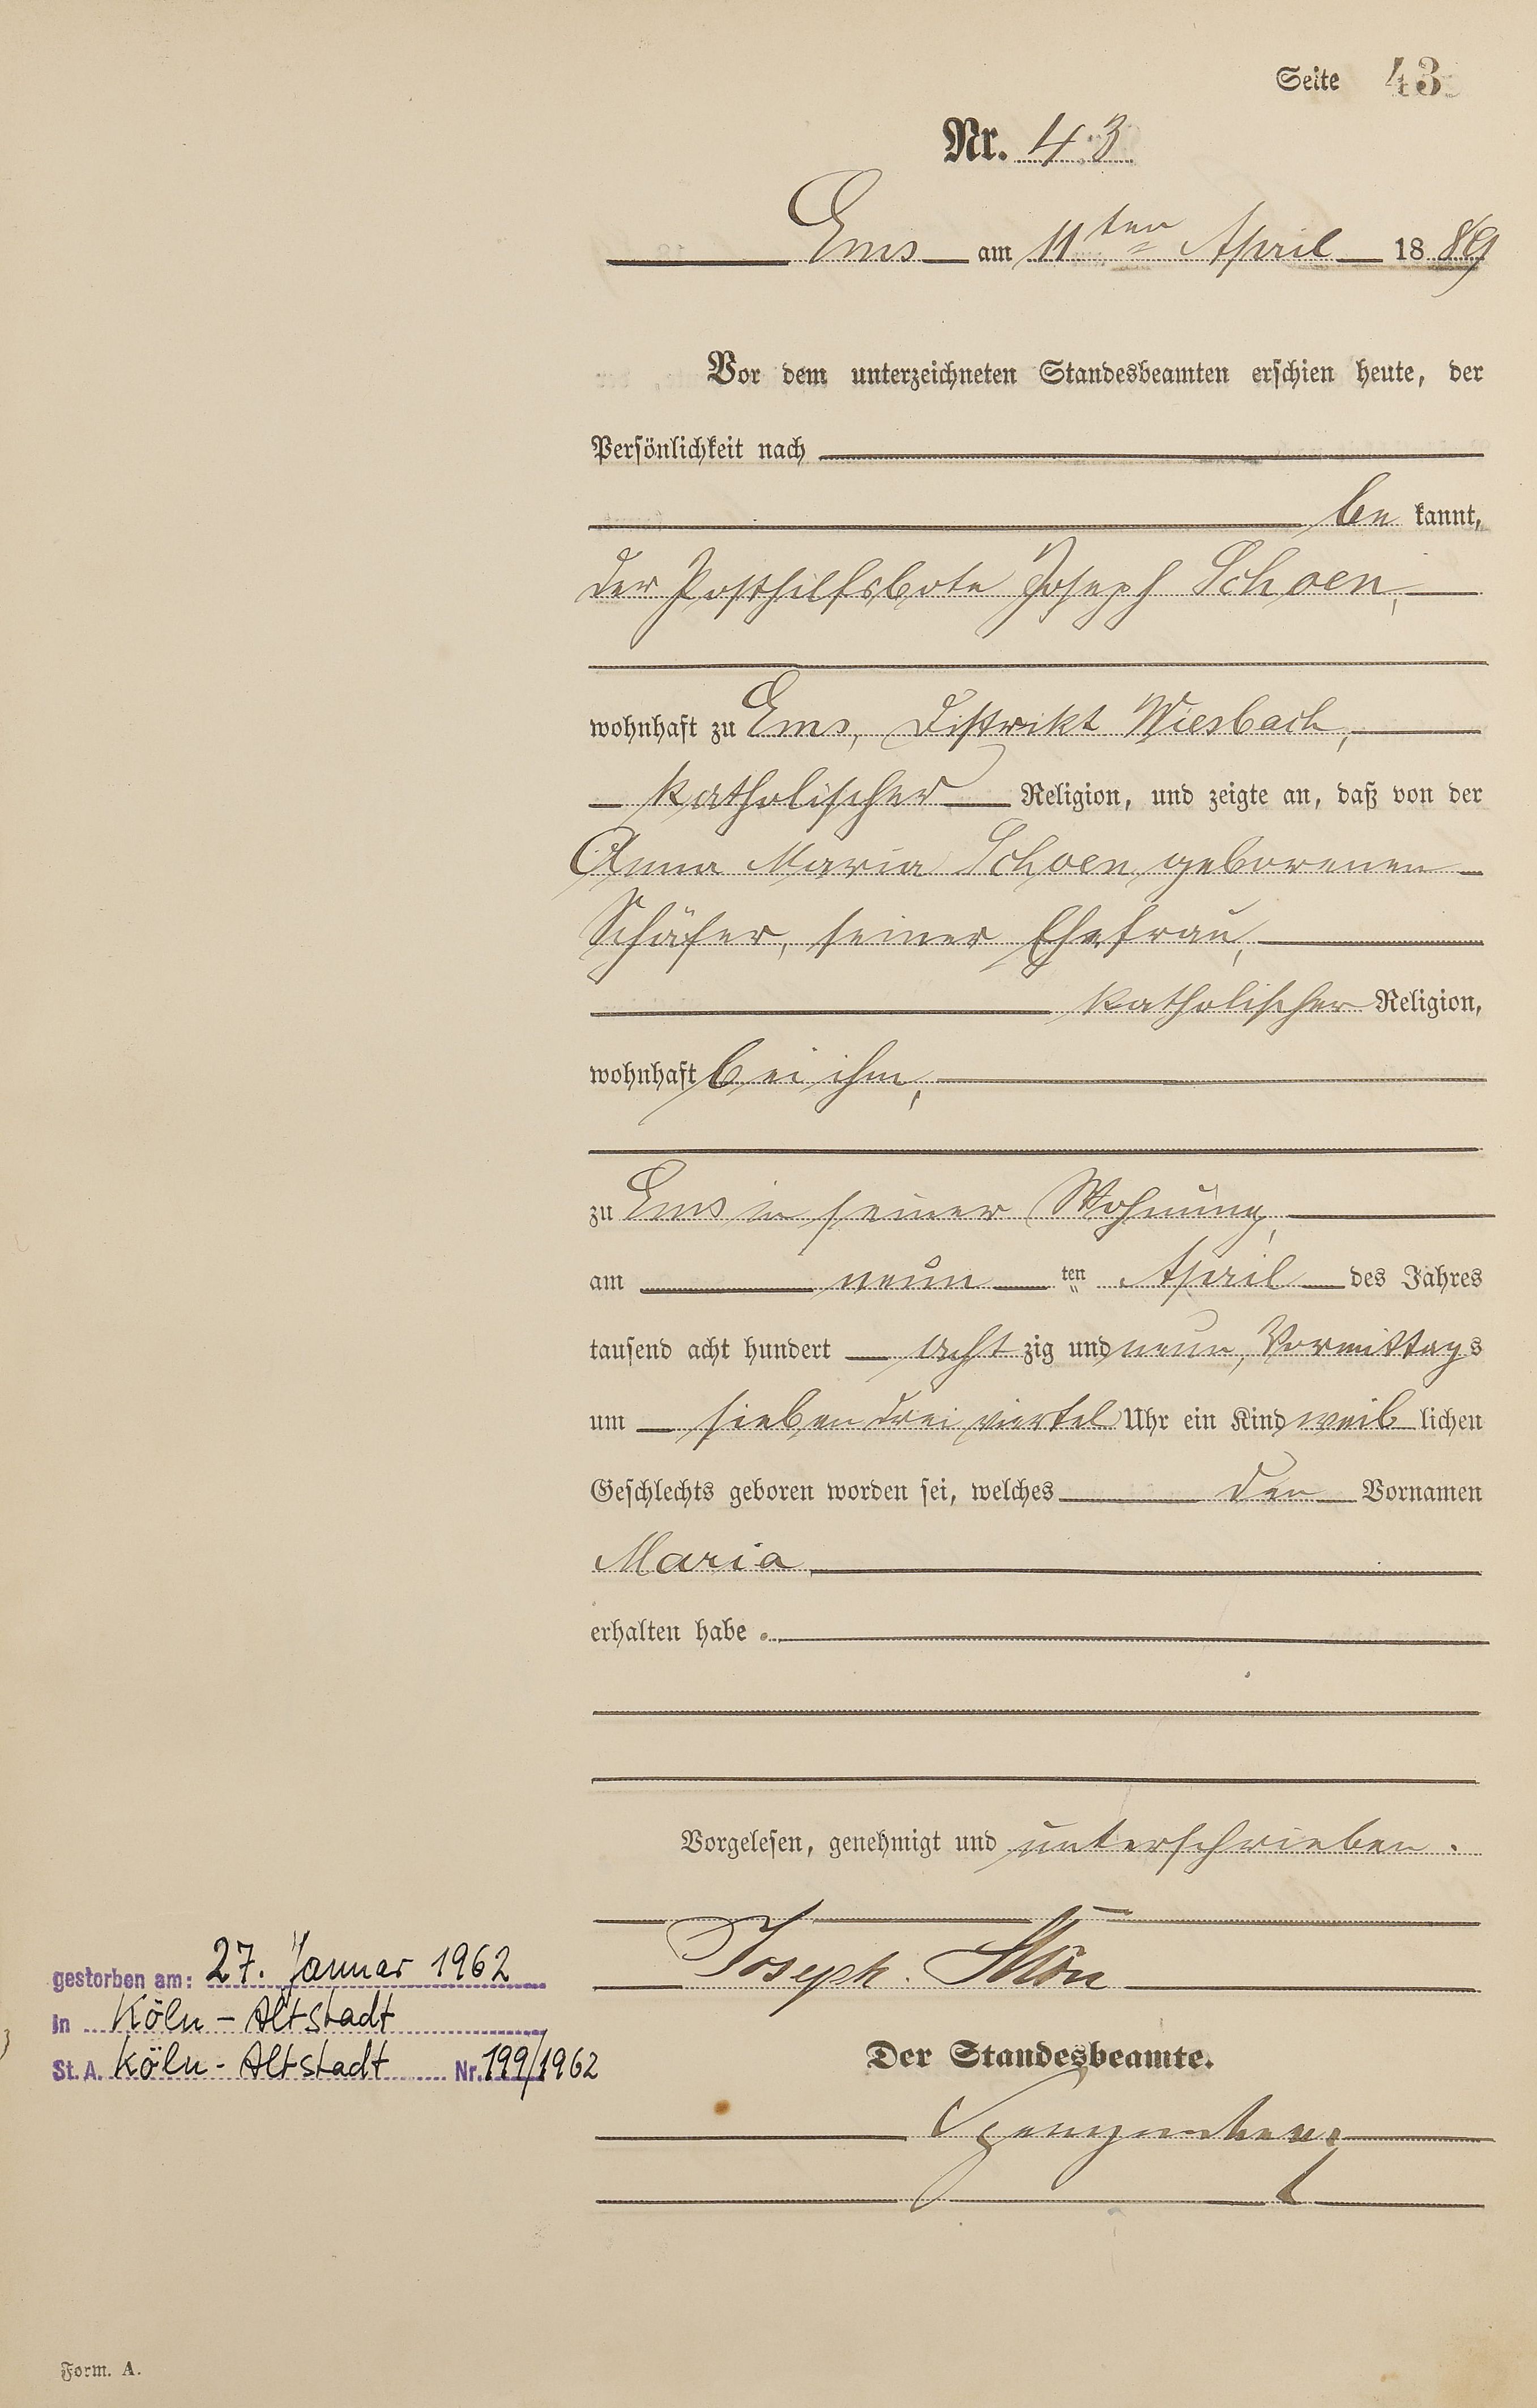 Seite 43
Nr. 43
Ems am 11ten April 1889
Vor dem unterzeichneten Standesbeamten erschien heute, der
Persönlichkeit nach
be kannt,
der Posthilfsbote Joseph Schoen,
wohnhaft zu Ems, Distrikt Wiesbach,
katholischer Religion, und zeigte an, daß von der
Anna Maria Schoen geborenen
Schäfer, seiner Ehefrau,
katholischer Religion,
wohnhaft bei ihm,
zu Ems in seiner Wohnung,
am neun ten April des Jahres
tausend acht hundert acht zig und neun, Vormittags
um sieben drei viertel Uhr ein Kind weib lichen
Geschlechts geboren worden sei, welches den Vornamen
Maria
erhalten habe.
Vorgelesen, genehmigt und unterschrieben.
Joseph Schön
Der Standesbeamte.
gestorben am: 27. Januar 1962
in Köln-Altstadt
St. A. Köln-Altstadt Nr. 199/1962
Form. A.